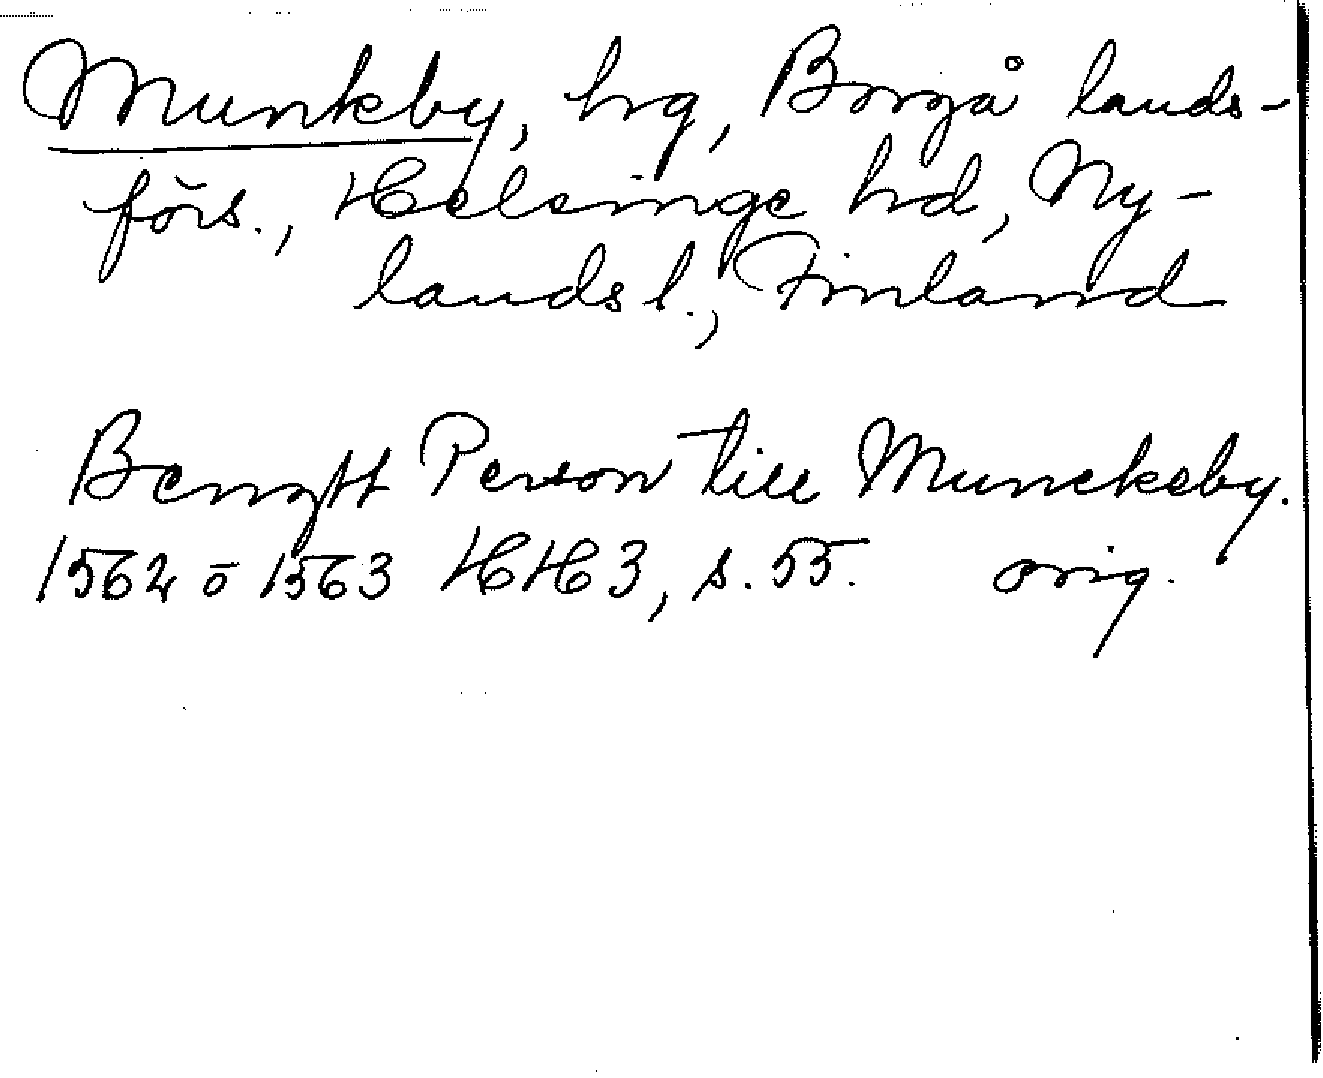 Munkby, hg, Borgå lands-
förs., Helsinge hd, Ny-
lands l., Finland
Bengtt Person till Munckeby.
1562 o 1563 HH3, s. 55. orig.